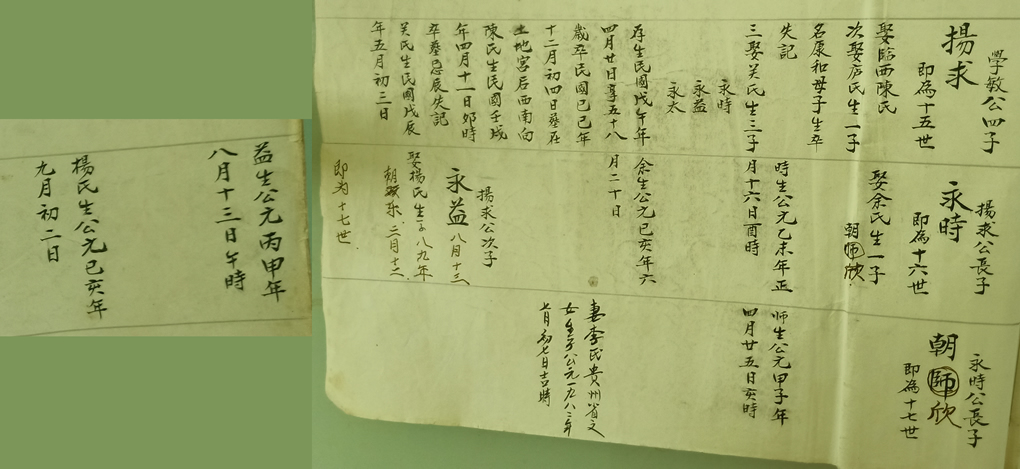 學敏公四子
揚求
即為十五世
娶臨西陳氏
次娶庐氏生一子
名康和母子生卒
失記
三娶关氏生三子
永時
永益
永太
存生民國戊午年
四月廿日享五十八
歲卒民國己巳年
十二月初四日塟在
土地宮后西南向
陳氏生民國壬戌
年四月十一日卯時
卒塟忌辰失記
关氏生民國戊辰
年五月初三日
揚求公長子
永時
即為十六世
娶余氏生一子
朝师欣
時生公元乙未年正
月十六日酉時
余生公元己亥年六
月二十日
揚求公次子
永益
八月十三
娶楊氏生子八九年
朝
乐
二月十二
即为十七世
永時公長子
朝师欣
即為十七世
师生公元甲子年
四月廿五日亥時
妻李氏贵州省
女
公元一九八二年
七月初七日吉時
益生公元丙甲年
八月十三日午時
楊氏生公元己亥年
九月初二日